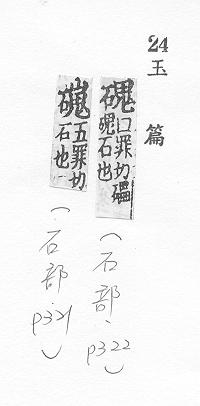 24 玉篇
磈 口罪切礧
磈石也
(石部、p322)
五罪切
石也
(石部、p321)